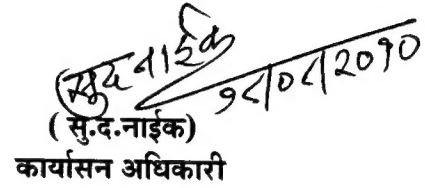 सुद नाईक
१८/०८/२०१०
( सु.द.नाईक)
कार्यासन अधिकारी